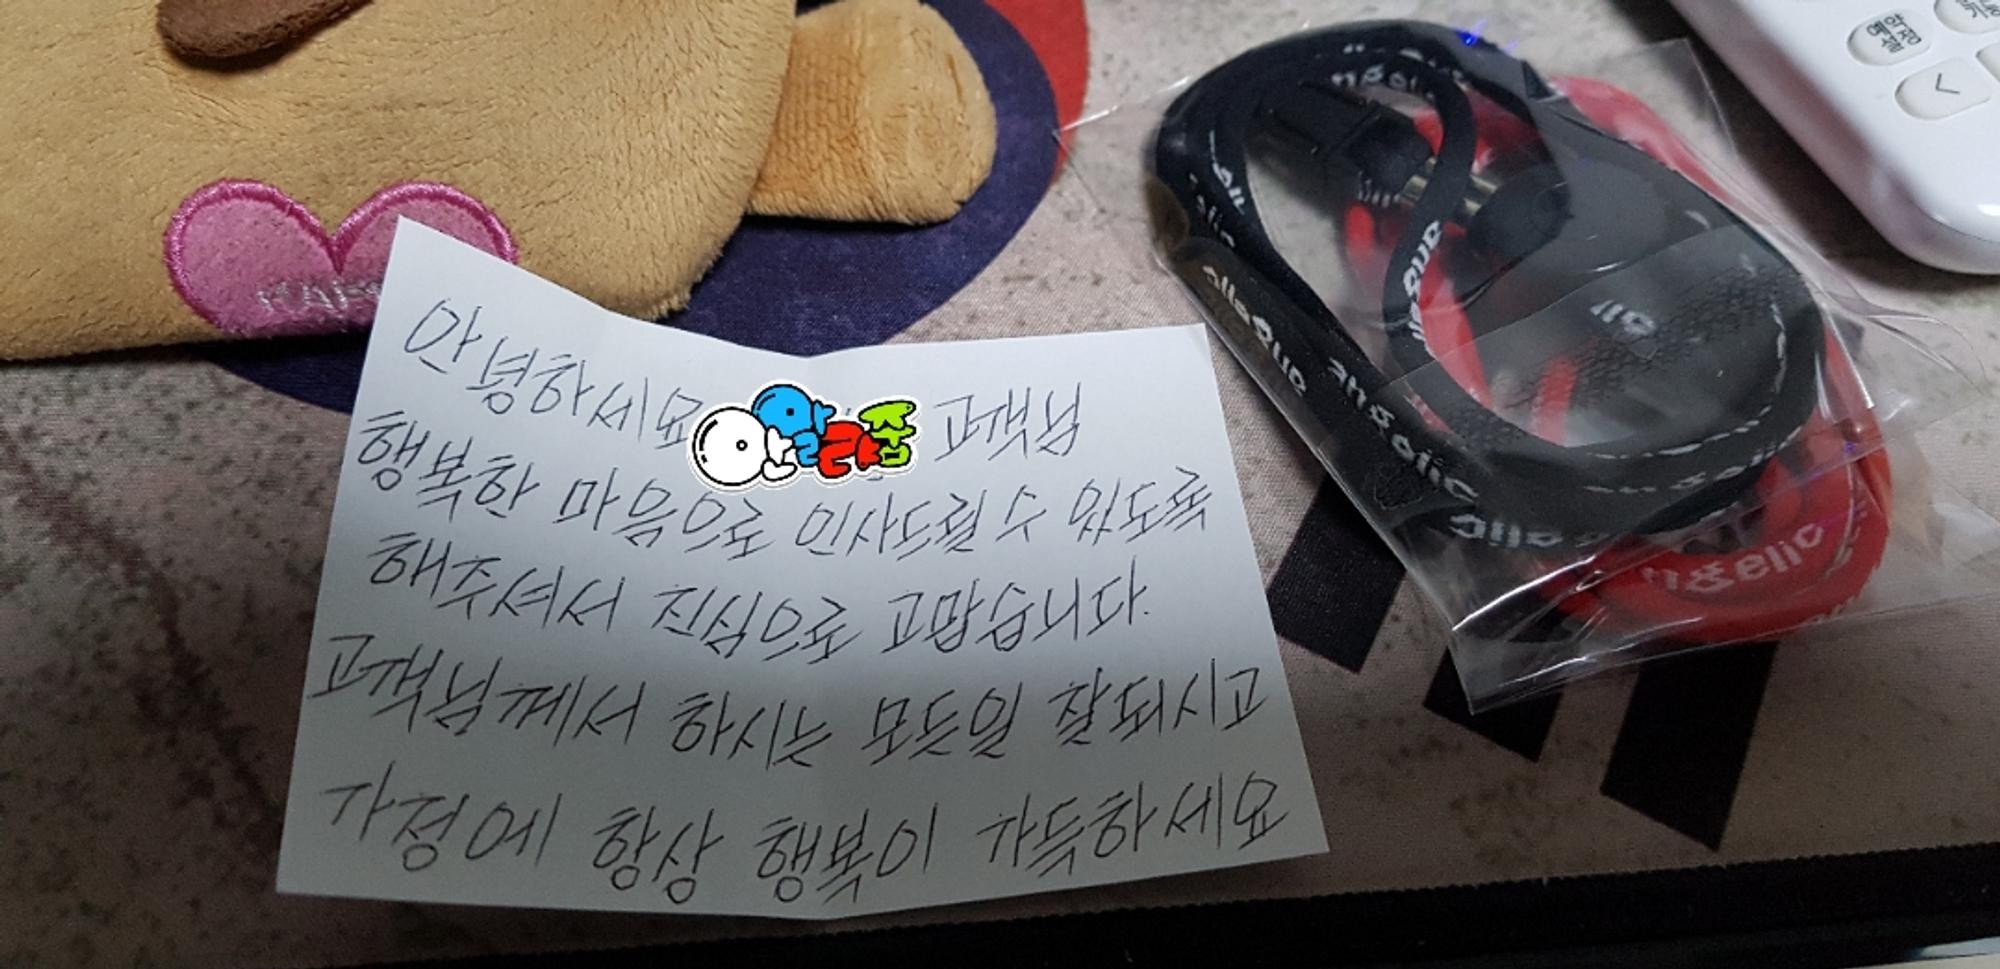 안녕하세요 고객님
행복한 마음으로 인사드릴 수 있도록
해주셔서 진심으로 고맙습니다.
고객님께서 하시는 모든일 잘되시고
가정에 항상 행복이 가득하세요
angelic
angelic
angelic